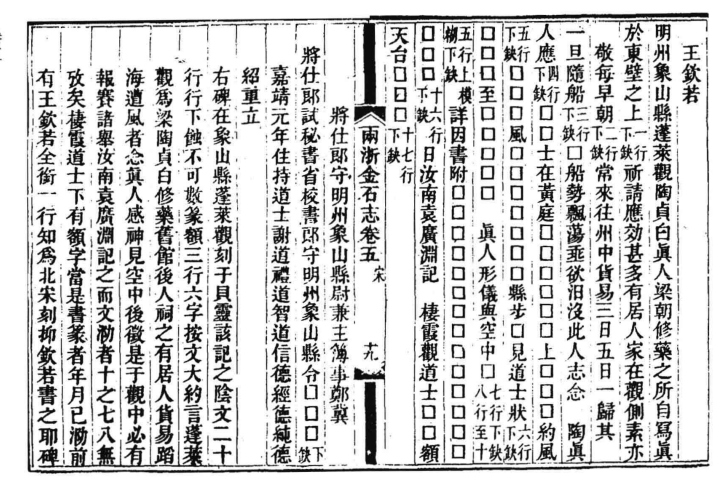 王欽若
明州象山縣蓬萊觀陶貞白眞人梁朝修藥之所自寫眞
於東壁之上一行下缺祈請應効甚多有居人家在觀側素亦
敬每早朝二行下缺常來往州中貨易三日五日一歸其
一旦隨船三行下缺船勢飄蕩垂欲汨沒此人志念　陶眞
人應四行下缺□□士在黃庭□□□□上□□約風
五行下缺□□□風□□□□縣步□見道士狀六行下缺
□□□至□□□□□　眞人形儀與空中□七行下缺八行至十
五行上模糊下缺詳因書附□□□□□□□□□□□
□□□□十六行下缺日汝南袁廣淵記　棲霞觀道士□□額
天台□□□□十七行下缺
兩浙金石志卷五　宋　十九
將仕郎守明州象山縣尉兼主簿事鄭冀
將仕郎試秘書省校書郎守明州象山縣令□□□下缺
嘉靖元年住持道士謝道禮道智道信德經德純德
紹重立
右碑在象山縣蓬萊觀刻于貝靈該記之陰文二十
行行下蝕不可數篆額三行六字按文大約言蓬萊
觀爲梁陶貞白修藥舊館後人祠之有居人貨易蹈
海遭風者念眞人感神見空中後徵是于觀中必有
報賽諸舉汝南袁廣淵記之而文泐者十之七八無
攷矣棲霞道士下有額字當是書篆者年月已泐前
有王欽若全銜一行知爲北宋刻抑欽若書之耶碑